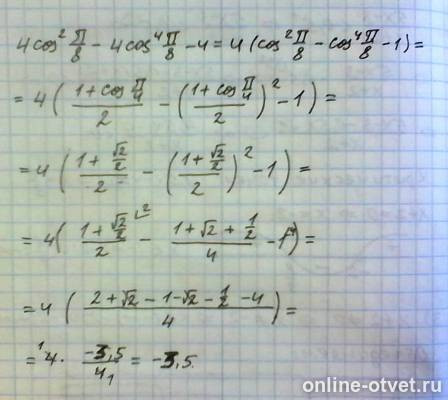 4cos² π/8 - 4cos⁴ π/8 - 4 = 4 (cos² π/8 - cos⁴ π/8 - 1) =
= 4 ( (1 + cos π/4)/2 - ((1 + cos π/4)/2)² - 1 ) =
= 4 ( (1 + √2/2)/2 - ((1 + √2/2)/2)² - 1 ) =
= 4 ( (1 + √2/2)/2 \2 - (1 + √2 + 1/2)/4 - 1\4 ) =
= 4 ( (2 + √2 - 1 - √2 - 1/2 - 4)/4 ) =
= ¹4 · (-3,5)/4₁ = -3,5.
online-otvet.ru